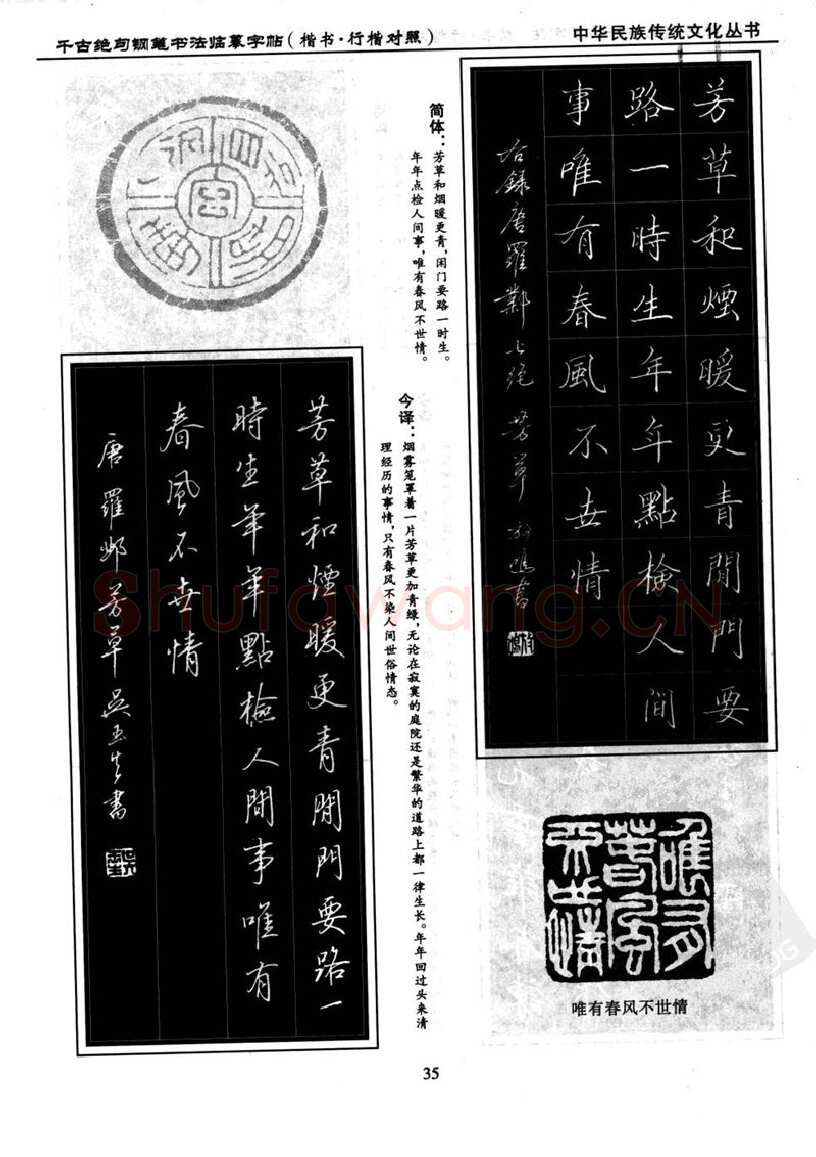 千古绝句钢笔书法临摹字帖（楷书·行楷对照）
中华民族传统文化丛书
芳草和煙暖更青閒門要
路一時生年年點檢人間
事唯有春風不世情
右録唐羅鄴七绝芳草 書
简体：芳草和烟暖更青，闲门要路一时生。
年年点检人间事，唯有春风不世情。
今译：烟雾笼罩着一片芳草更加青绿，无论在寂寞的庭院还是繁华的道路上都一律生长。年年回过头来清
理经历的事情，只有春风不染人间世俗情态。
芳草和煙暖更青閒門要路一
時生年年點檢人間事唯有
春風不世情
唐羅邺芳草吴玉生書
唯有
春風
不世情
唯有春风不世情
35
Shufawang.CN